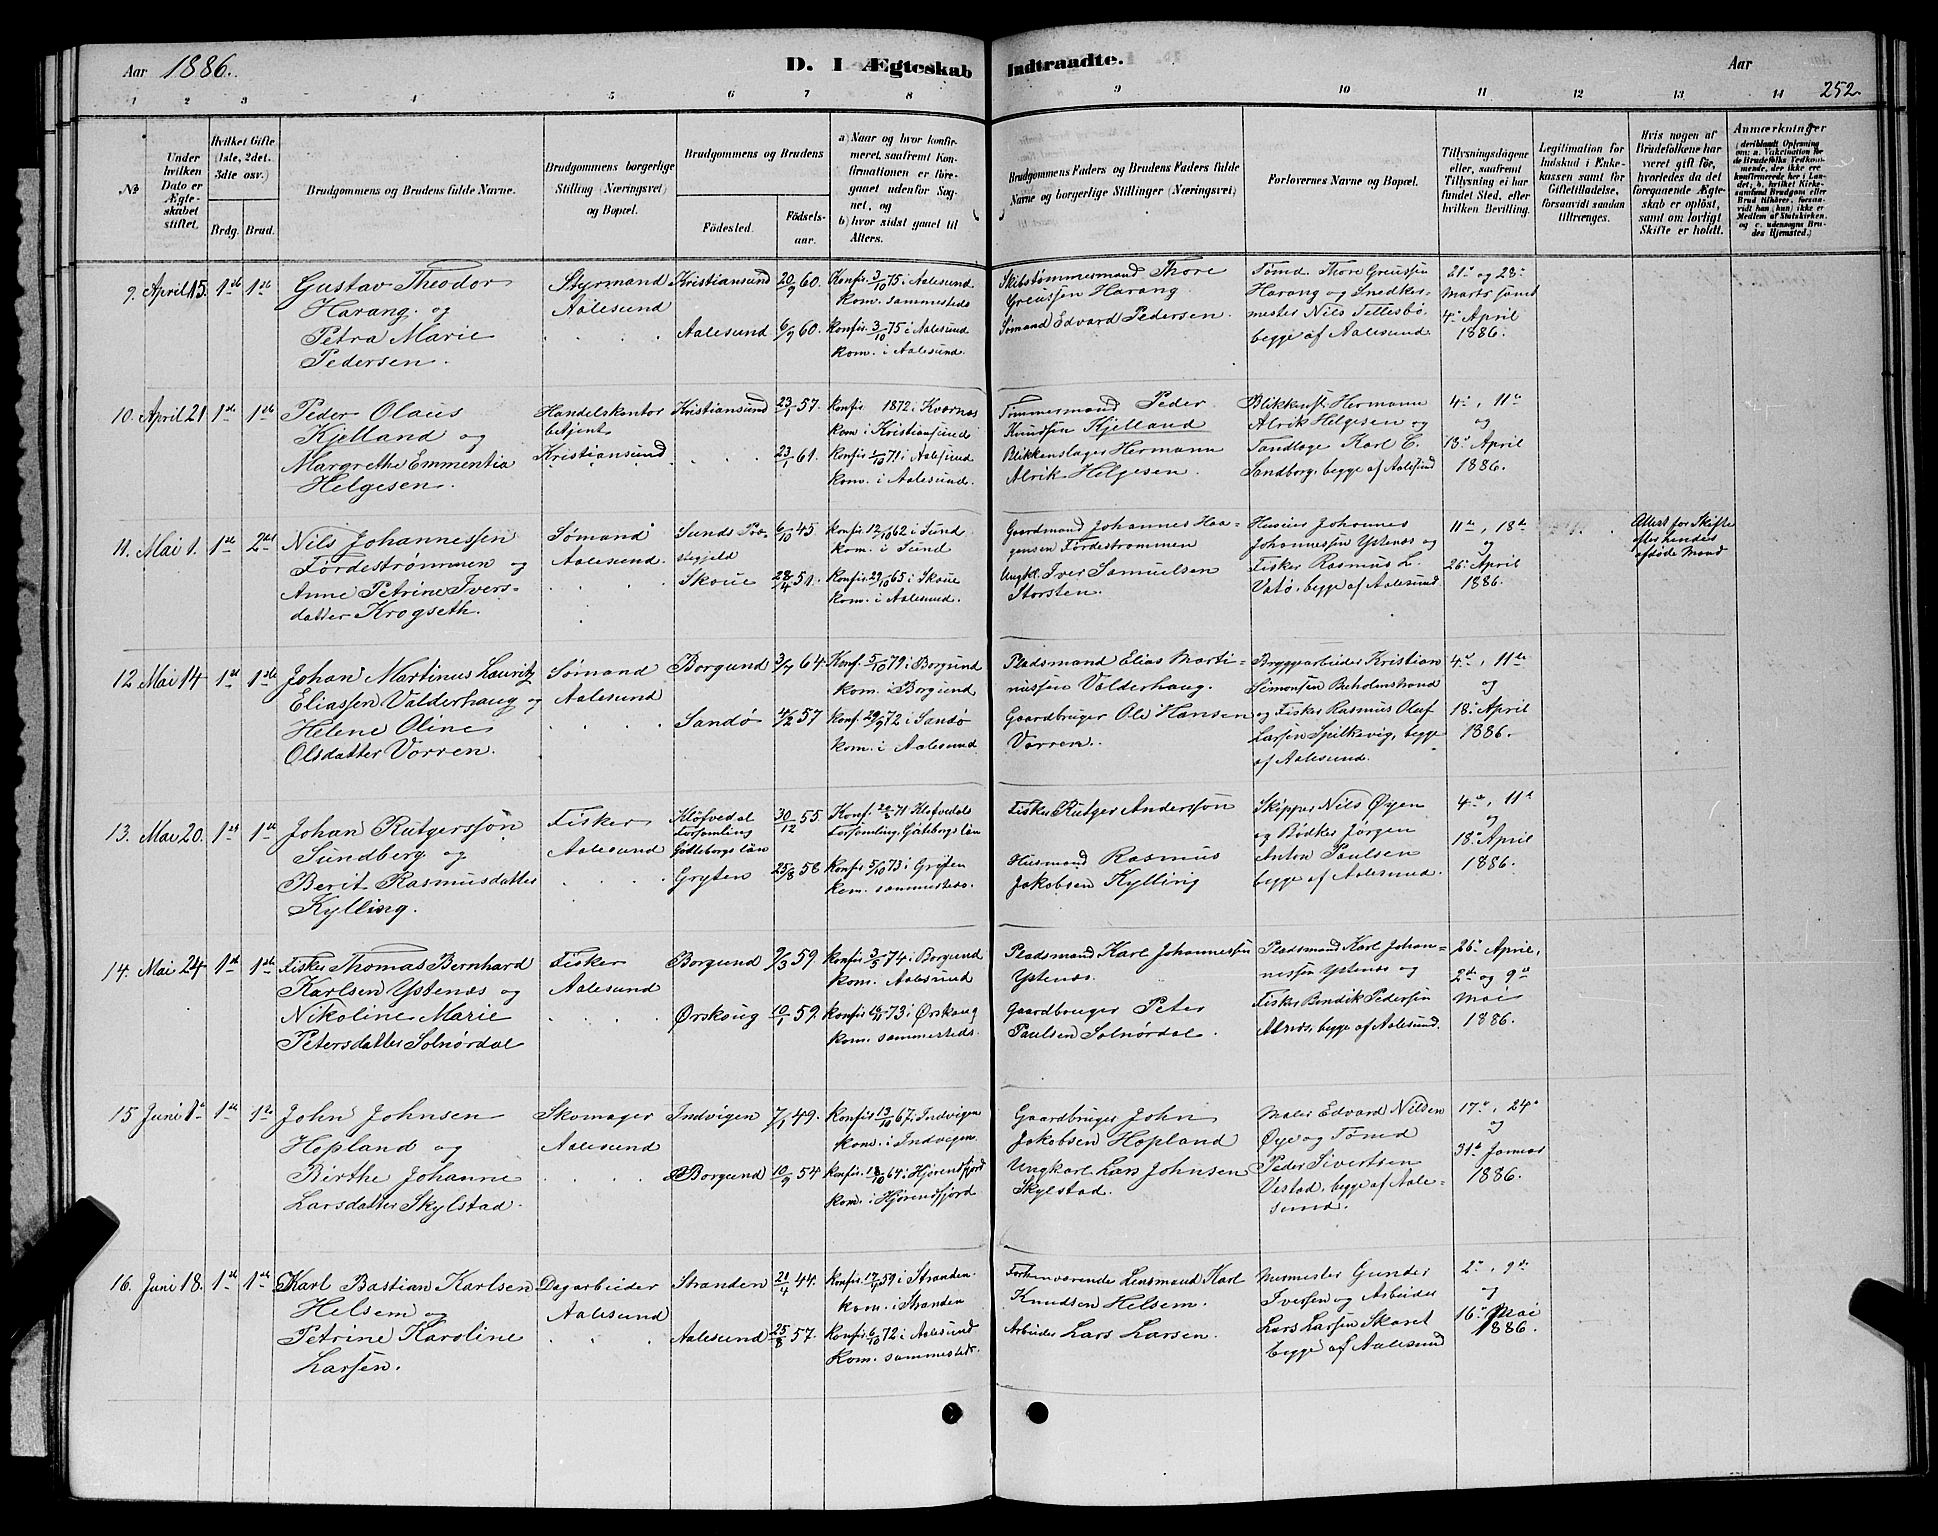 Aar 1886.
D. I Ægteskab Indtraadte.
Aar
252.
1 2 3 4 5 6 7 8 9 10 11 12 13 14
No
Under hvilken Dato er Ægteskabet stiftet.
Hvilket Gifte (1ste, 2det. 3die osv.)
Brdg. Brud.
Brudgommens og Brudens fulde Navne.
Brudgommens borgerlige Stilling (Næringsvei) og Bopæl.
Brudgommens og Brudens
Födested.
Födselsaar.
a) Naar og hvor konfirmeret, saafremt Konfirmationen er foregaaet udenfor Sognet, og
b) hvor sidst gaaet til Alters.
Brudgommens Faders og Brudens Faders fulde Navne og borgerlige Stillinger (Næringsvei)
Forlovernes Navne og Bopæl.
Tillysningsdagene eller, saafremt Tillysning ei har fundet Sted, efter hvilken Bevilling.
Legitimation for Indskud i Enkekassen samt for Giftetilladelse, forsaavidt saadan tiltrænges.
Hvis nogen af Brudefolkene har været gift för, hvorledes da det foregaaende Ægteskab er oplöst, samt om lovligt Skifte er holdt.
Anmærkninger
9. April 15. 1ste 1ste
Gustav Theodor
Harang og
Petra Marie
Pedersen.
Styrmand
Aalesund
Kristiansund 20/9 60.
Aalesund 6/9 60.
Konfir 3/10 75 i Aalesund
Kom. sammesteds
Konfir. 3/10 75 i Aalesund
kom. i Aalesund.
Skibstømmermand Thore
Greussen Harang.
Sømand Edvard Pedersen.
Tømd. Thore Greussen
Harang og Snedker-
mester Nils Tettesbø,
begge af Aalesund.
21de og 28de
Marts samt
4de April
1886.
10. April 21 1ste 1ste
Peder Olaus
Kjelland og
Margrethe Emmentia
Helgesen.
Handelskontor
betjent
Kristiansund
Kristiansund 23/1 57.
23/1 61.
Konfir 1872 i Kvernes
kom i Kristiansund
Konfir 1/10 71 i Aalesund
kom. i Aalesund.
Tømmermand Peder
Knudsen Kjelland
Blikkenslager Hermann
Alrik Helgesen.
Blikkensl. Hermann
Alrik Helgesen og
Tandlæge Karl C.
Sandborg, begge af Aalesund
4de, 11te
og
18de April
1886.
11. Mai 1. 1ste 2det
Nils Johannessen
Førdestrømmen og
Anne Petrine Ivers-
datter Krogseth.
Sømand
Aalesund.
Sunds Præ-
stegjeld 6/10 45
Skoue 28/4 51.
Konfir. 12/10 62 i Sund
kom. i Sund
Konfir. 29/10 65 i Skoue
Kom. i Aalesund.
Gaardmand Johannes Haa-
gensen Førdestrømmen
Ungkl. Iver Samuelsen
Storsten.
Huseier Johannes
Johannessen Ystenæs og
Fisker Rasmus L.
Vatø, begge af Aalesund.
11te, 18de
og
26de April
1886.
Attest for Skifte
efter hendes
afdøde Mand
12 Mai 14 1ste 1ste
Johan Martinus Lauritz
Eliassen Valderhaug og
Helene Oline
Olsdatter Vorren.
Sømand
Aalesund
Borgund 3/7 64.
Sandø 4/2 57
Konf. 5/10 79 i Borgund
kom. i Borgund
Konf. 29/9 72 i Sandø
kom. i Aalesund
Pladsmand Elias Marti-
nussen Valderhaug.
Gaardbruger Ole Hansen
Vorren.
Bryggearbeider Kristian
Simonsen Buholmstrand
og Fisker Rasmus Oluf
Larsen Spilkevig, begge
af Aalesund.
4de, 11te
og
18de April
1886.
13. Mai 20. 1ste 1ste
Johan Rutgersson
Sundberg og
Berit Rasmusdatter
Kylling.
Fisker
Aalesund
Klöfvedal
Forsamling
Götteborgs län 30/12 55
Gryten 25/8 58
Konf. 20/5 71 Klofvedal
Forsamling, Göteborgs län
Konfir 5/10 73 i Gryten
kom. sammesteds.
Fisker Rutger Andersson
Husmand Rasmus
Jakobsen Kylling
Skipper Nils Øyen
og Bødker Jørgen
Anton Paulsen
begge af Aalesund.
4de, 11te
18de April
1886.
14 Mai 24 1ste 1ste
Fisker Thomas Bernhard
Karlsen Ystenæs og
Nikoline Marie
Petersdatter Solnørdal
Fisker
Aalesund
Borgund 9/3 59.
Ørskoug 10/1 59.
Konfir 3/5 74 i Borgund
kom. Aalesund
Konfir 73 i Ørskoug
kom. sammesteds.
Pladsmand Karl Johannessen
Ystenæs.
Gaardbruger Peter
Paulsen Solnørdal.
Pladsmand Karl Johan-
nessen Ystenæs og
Fisker Bendik Pedersen
Alnæs, begge af Aalesund.
26de April,
2den og 9de
Mai
1886.
15 Juni 1ste 1ste 1ste
John Johnsen
Hopland og
Birthe Johanne
Larsdatter Skylstad.
Skomager
Aalesund
Indvigen 7/1 49.
Borgund 10/9 54
Konfir. 13/10 67. Indvigen
kom. i Indvigen.
Konfir. 18/10 64 i Hjørendfjord
kom. i Hjørendfjord
Gaardbruger John
Jakobsen Hopland
Ungkarl Lars Johnsen
Skylstad.
Maler Edvard Nilsen
Øye og Tømd
Peder Sivertsen
Vestad, begge af Aale-
sund.
17de, 24de
og
31te Januar
1886.
16. Juni 18. 1ste 1ste
Karl Bastian Karlsen
Helsem og
Petrine Karoline
Larsen.
Dagarbeider
Aalesund
Stranden 21/4 44.
Aalesund 25/8 57.
Konfir. 59 i Stranden
kom. i Stranden
Konfir. 6/10 72 i Aalesund
kom. sammesteds
Forhenværende Lensmand Karl
Knudsen Helsem.
Arbeider Lars Larsen.
Murmester Gunder
Iversen og Arbeider
Lars Larsen Skaret
begge af Aalesund
2den, 9de
og
16de Mai
1886.